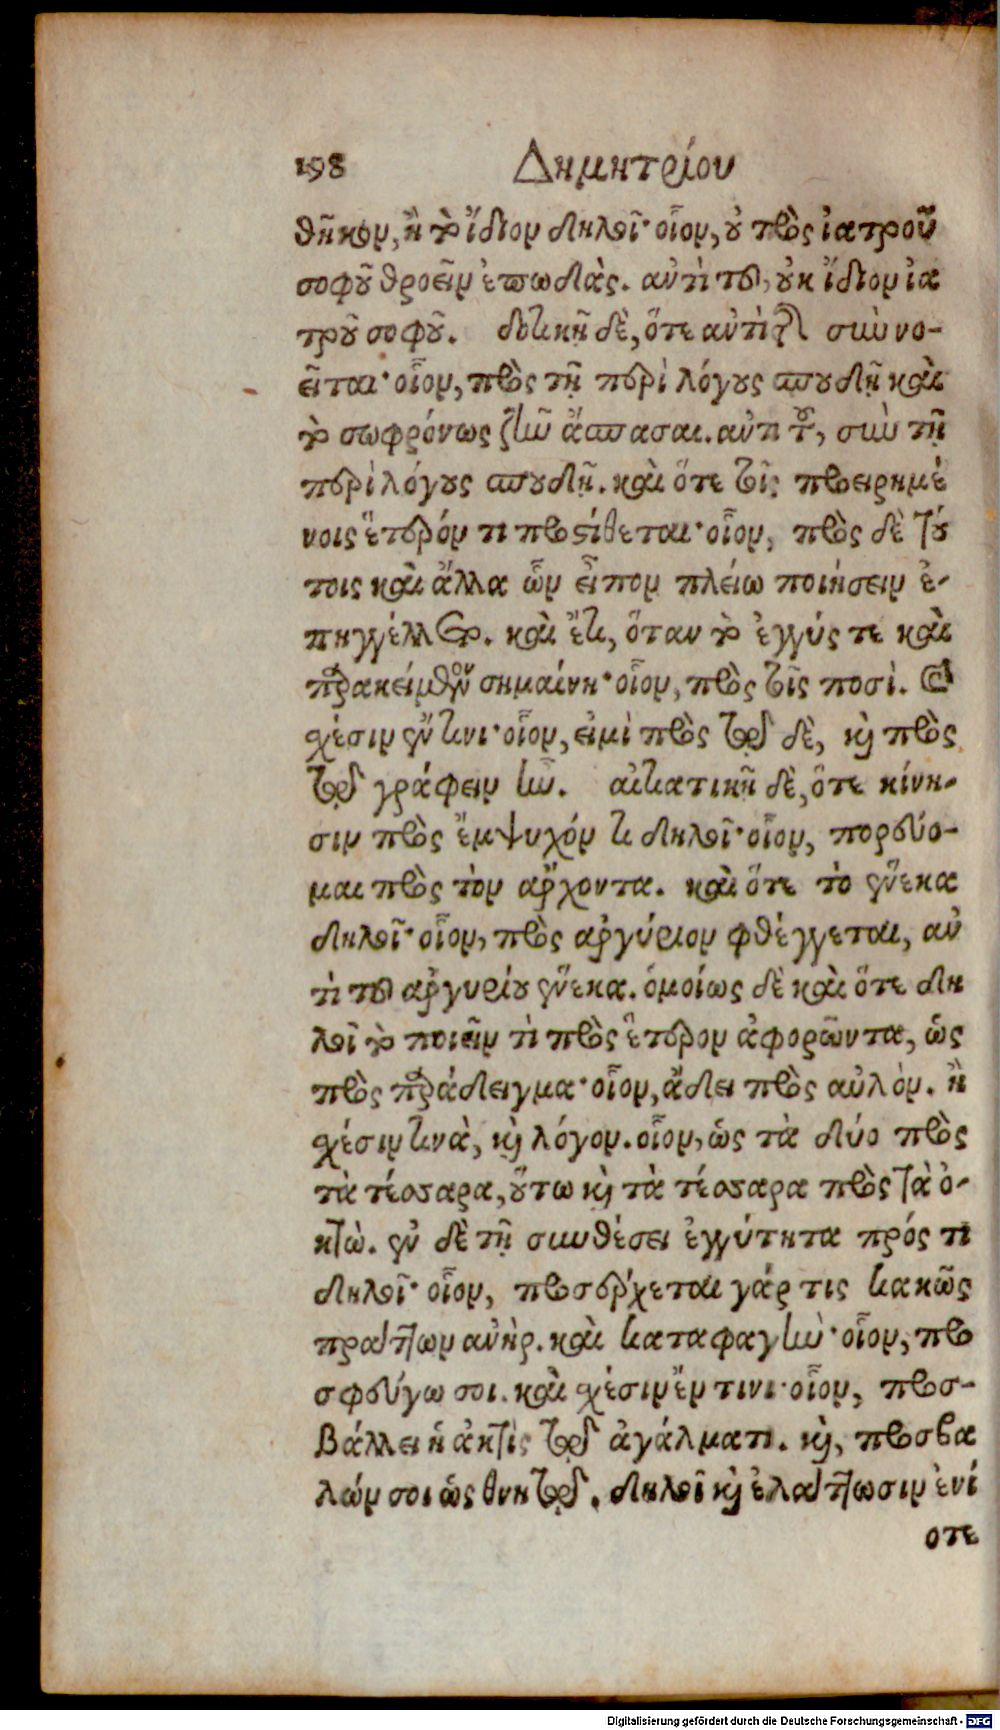 198 Δημητρίου
θῆκον, ἢ τὸ ἴδιον δηλοῖ· οἷον, οὐ πρὸς ἰατροῦ
σοφοῦ θροεῖν ἐπωδὰς. αὐτὶ τοῦ, οὐκ ἴδιον ἰα
τροῦ σοφοῦ. δοτικῇ δὲ, ὅτε αὐτὶ τῆς σὺν νο-
εῖται· οἷον, πρὸς τῇ περὶ λόγους σπουδῇ καὶ
τὸ σωφρόνως ζῆν ἄσπασαι. αὐτὶ τοῦ, σὺν τῇ
περὶ λόγους σπουδῇ. καὶ ὅτε τοῖς προειρημέ
νοις ἕτερόν τι προστίθεται· οἷον, πρὸς δὲ τού
τοις καὶ ἄλλα ὧν εἶπον πλείω ποιήσειν ἐ-
πηγγέλλετο. καὶ ἔτι, ὅταν τὸ ἐγγύς τε καὶ
παρακείμενον σημαίνῃ· οἷον, πρὸς τοῖς ποσὶ. καὶ
χέσιν ἔν τινι· οἷον, εἰμὶ πρὸς τῷ δὲ, καὶ πρὸς
τῷ γράφειν ἦν. αἰτιατικῇ δὲ, ὅτε κίνη-
σιν πρὸς ἔμψυχόν τι δηλοῖ· οἷον, πορεύο-
μαι πρὸς τὸν ἄρχοντα. καὶ ὅτε τὸ ἕνεκα
δηλοῖ· οἷον, πρὸς ἀργύριον φθέγγεται, αὐ
τὶ τοῦ ἀργυρίου ἕνεκα. ὁμοίως δὲ καὶ ὅτε δη
λοῖ τὸ ποιεῖν τὶ πρὸς ἕτερον ἀφορῶντα, ὡς
πρὸς παράδειγμα· οἷον, ᾄδει πρὸς αὐλὸν. ἢ
χέσιν τινὰ, καὶ λόγον. οἷον, ὡς τὰ δύο πρὸς
τὰ τέσσαρα, οὕτω καὶ τὰ τέσσαρα πρὸς τὰ ὀ-
κτὼ. ἐν δὲ τῇ συνθέσει ἐγγύτητα πρός τι
δηλοῖ· οἷον, προσέρχεται γάρ τις κακῶς
πράττων ἀνὴρ. καὶ καταφαγὴν· οἷον, προ
σφεύγω σοι. καὶ χέσιν ἔν τινι· οἷον, προσ-
βάλλει ἡ ἀκτὶς τῷ ἀγάλματι. καὶ, προσβα
λών σοι ὡς θνητῷ. δηλοῖ καὶ ἐλάττωσιν ἐνί
οτε
Digitalisierung gefördert durch die Deutsche Forschungsgemeinschaft - DFG